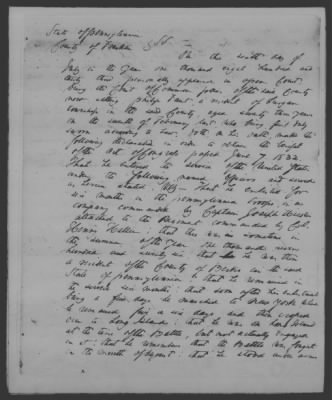 State of Pennsylvania
County of           SS.
On this sixth day of
July in the Year one thousand eight hundred and
thirty three personally appeared in open Court
being the Court of Common Pleas of the said County
now sitting Philip            a resident of
Township in the said County aged seventy two years
in the month of February last who being first duly
sworn according to law, doth on his oath, make the
following declaration in order to obtain the benefit
of the Act of Congress passed June 7 1832.
That he entered the service of the United States
under the following named officers and served
as herein stated. Viz. That he enlisted for
six months in the Pennsylvania troops in a
company commanded by Captain Joseph
attached to the Regiment commanded by Col.
Henry Haller; that this was as volunteers in
the summer of the Year one thousand seven
hundred and seventy six that he was then
a resident of the County of Berks in the said
State of Pennsylvania that he remained in
the service six months; that soon after he enlisted
being a few days he marched to New York where
he remained five or six days and then crossed
over to Long Island; that he was on Long Island
at the time of the Battle, but not actually engaged
in it; that he remembers that the Battle was fought
in the month of August; that he stood under arms